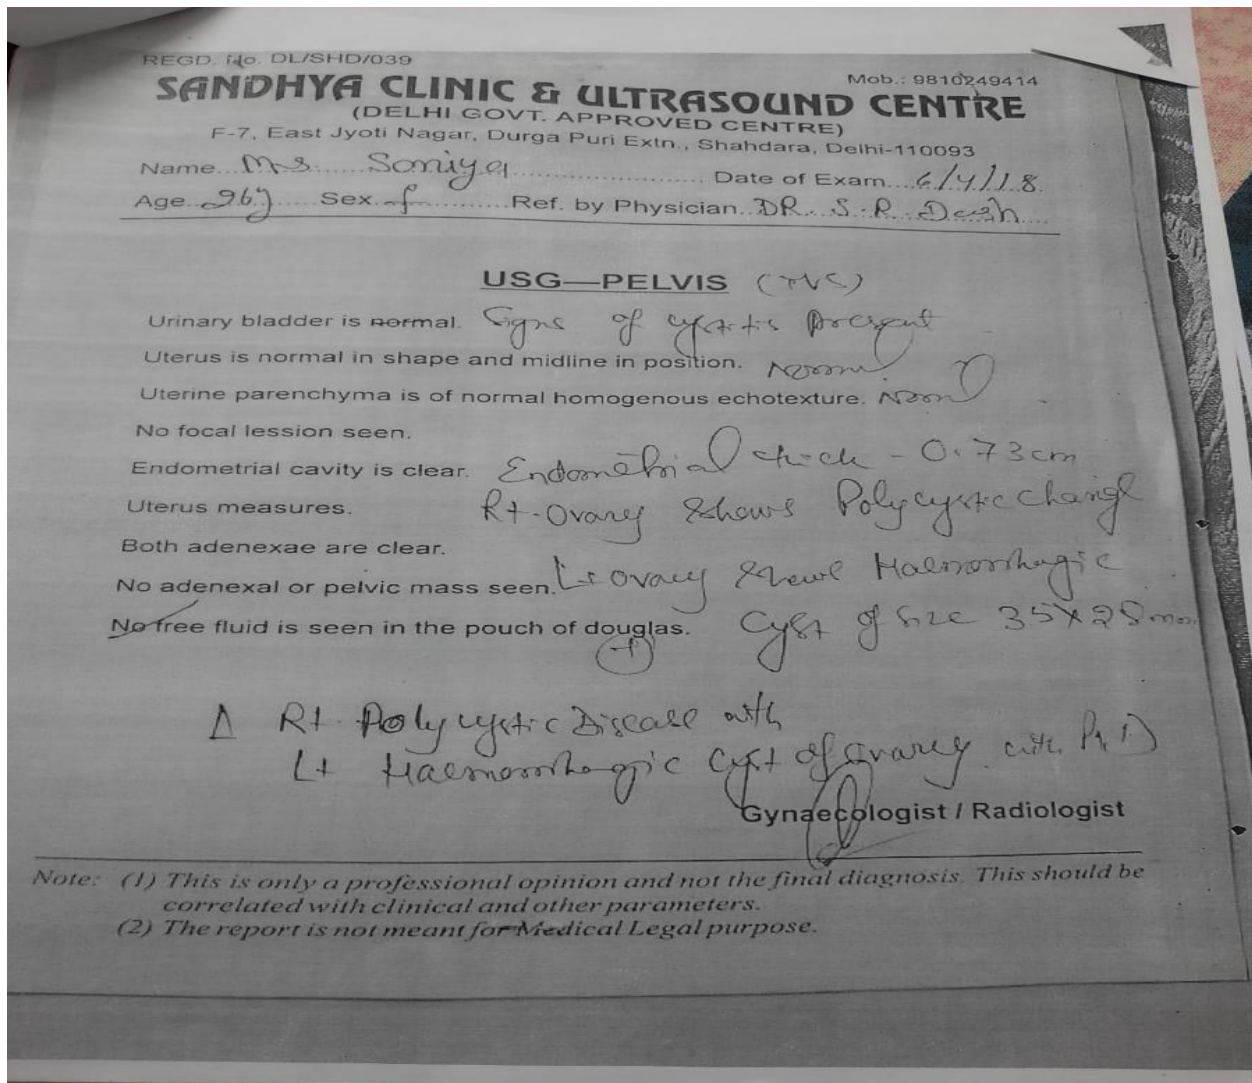 REGD. No. DL/SHD/039
Mob.: 9810249414
SANDHYA CLINIC & ULTRASOUND CENTRE
(DELHI GOVT. APPROVED CENTRE)
F-7, East Jyoti Nagar, Durga Puri Extn., Shahdara, Delhi-110093
Name... Ms. Soniya Date of Exam... 6/4/18
Age... 26y Sex... f Ref. by Physician... DR. S. R. Dash
USG—PELVIS (TVS)
Urinary bladder is normal. Signs of cystitis present
Uterus is normal in shape and midline in position. Normal
Uterine parenchyma is of normal homogenous echotexture. Normal
No focal lession seen.
Endometrial cavity is clear. Endometrial thick - 0.73cm
Uterus measures. Rt. Ovary shows Polycystic change
Both adenexae are clear.
No adenexal or pelvic mass seen. Lt ovary shows Haemorrhagic
No free fluid is seen in the pouch of douglas. Cyst of size 35X28mm
(+)
Δ Rt Polycystic Disease with
Lt Haemorrhagic Cyst of ovary with P.I.D
Gynaecologist / Radiologist
Note: (1) This is only a professional opinion and not the final diagnosis. This should be
correlated with clinical and other parameters.
(2) The report is not meant for Medical Legal purpose.